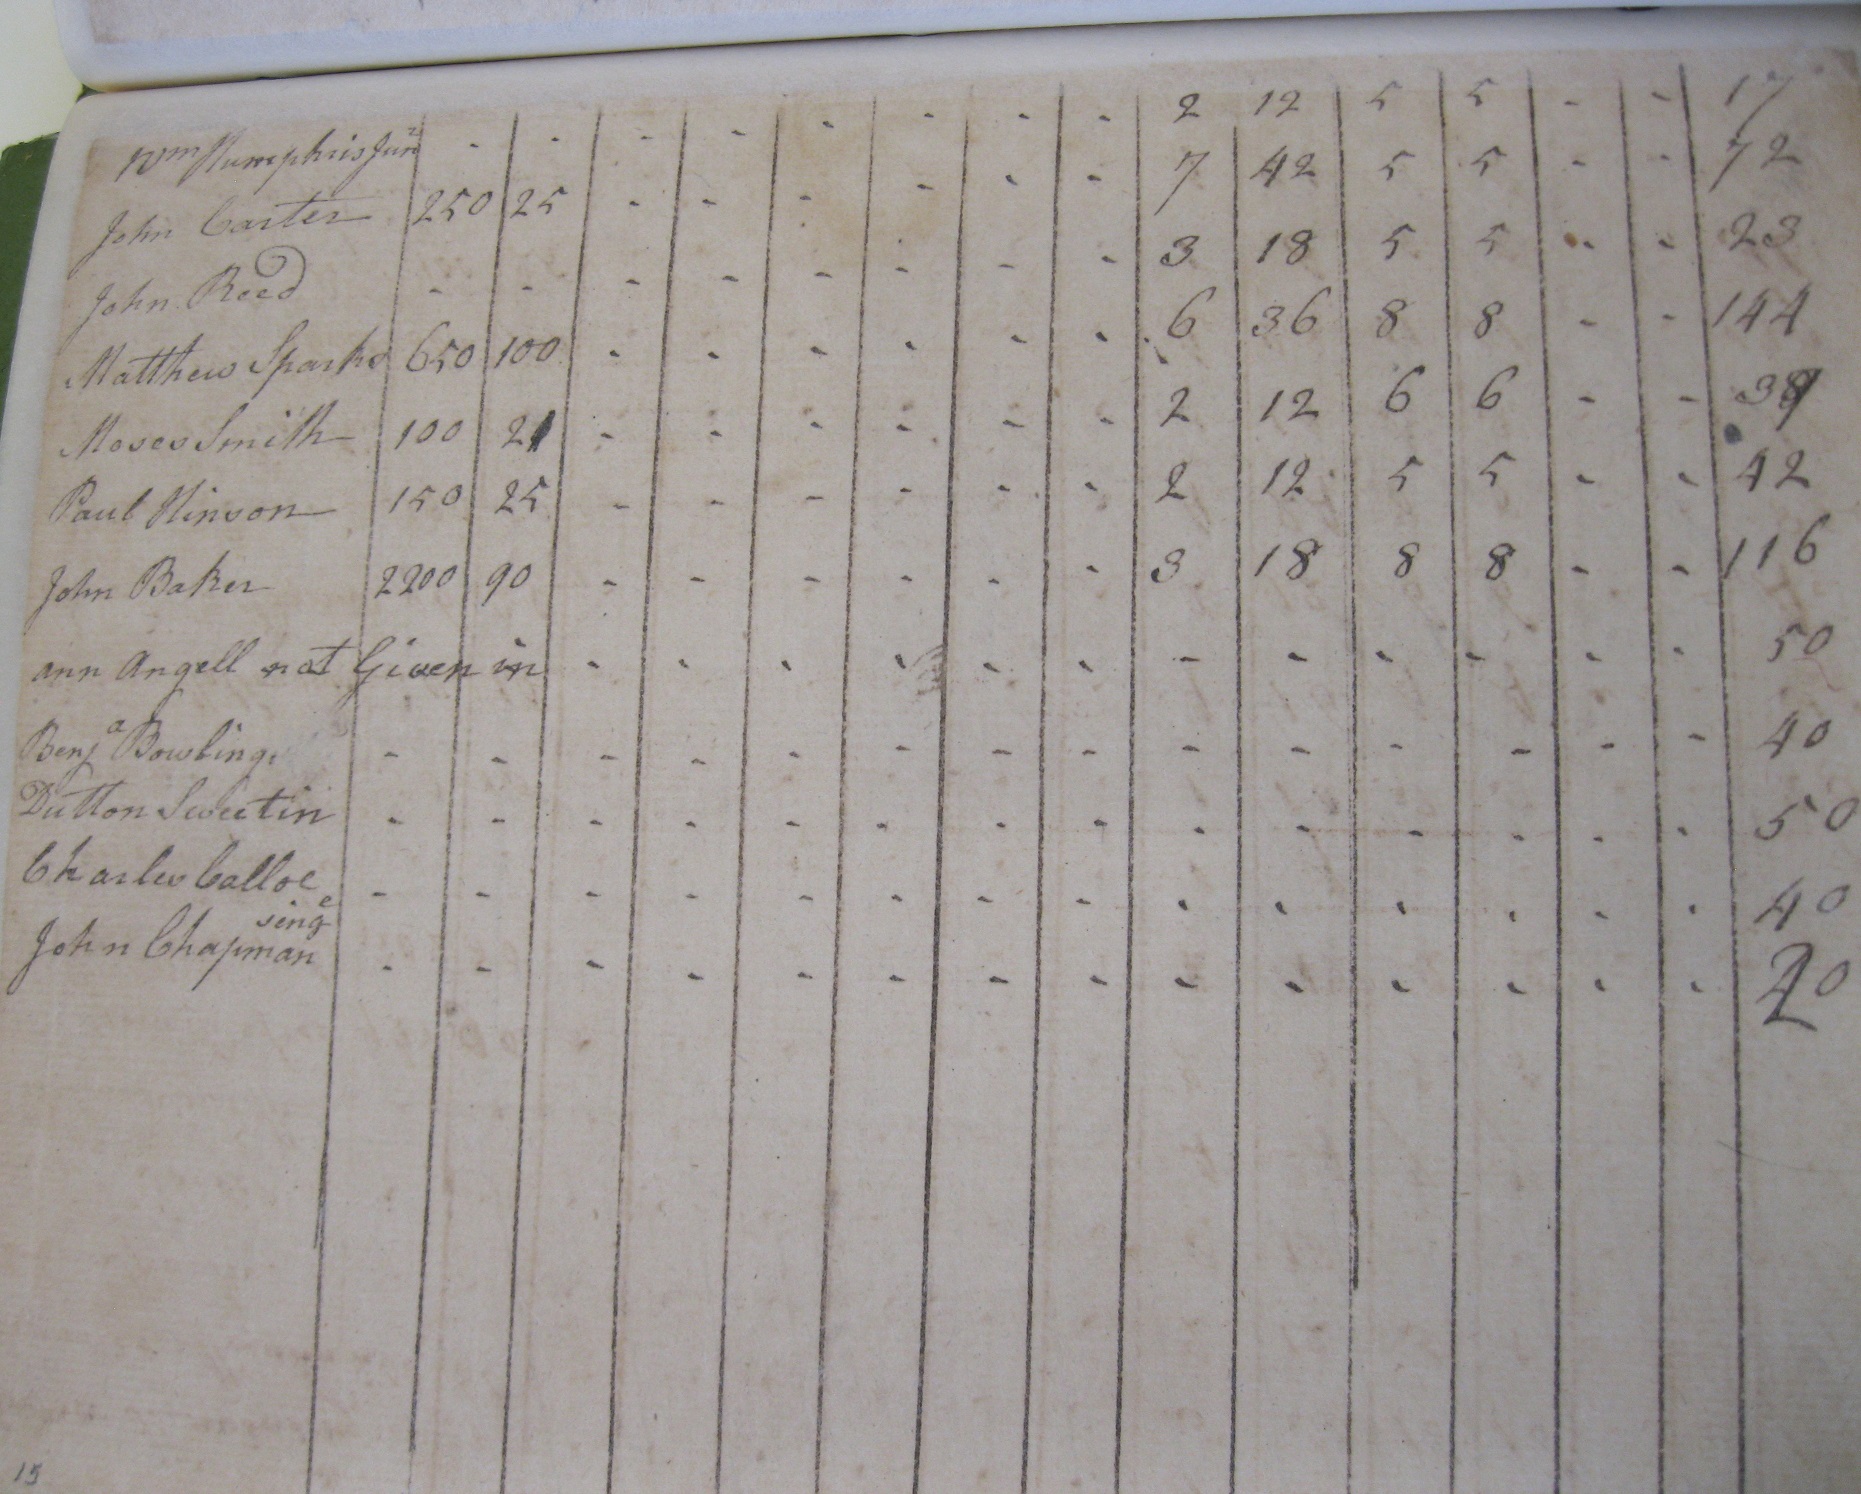 Wm Humphris Junr - - - - - - - - 2 12 5 5 - - 17
John Carter 250 25 - - - - - - 7 42 5 5 - - 72
John Reed - - - - - - - - 3 18 5 5 - - 23
Matthew Sparks 650 100 - - - - - - 6 36 8 8 - - 144
Moses Smith 100 21 - - - - - - 2 12 6 6 - - 39
Paul Hinson 150 25 - - - - - - 2 12 5 5 - - 42
John Baker 2200 90 - - - - - - 3 18 8 8 - - 116
ann Angell not Given in - - - - - - - - - - - - 50
Benja Bowling - - - - - - - - - - - - - - 40
Dutton Sweetin - - - - - - - - - - - - - - 50
Charles Calloe - - - - - - - - - - - - - - 40
singe
John Chapman - - - - - - - - - - - - - - 20
15